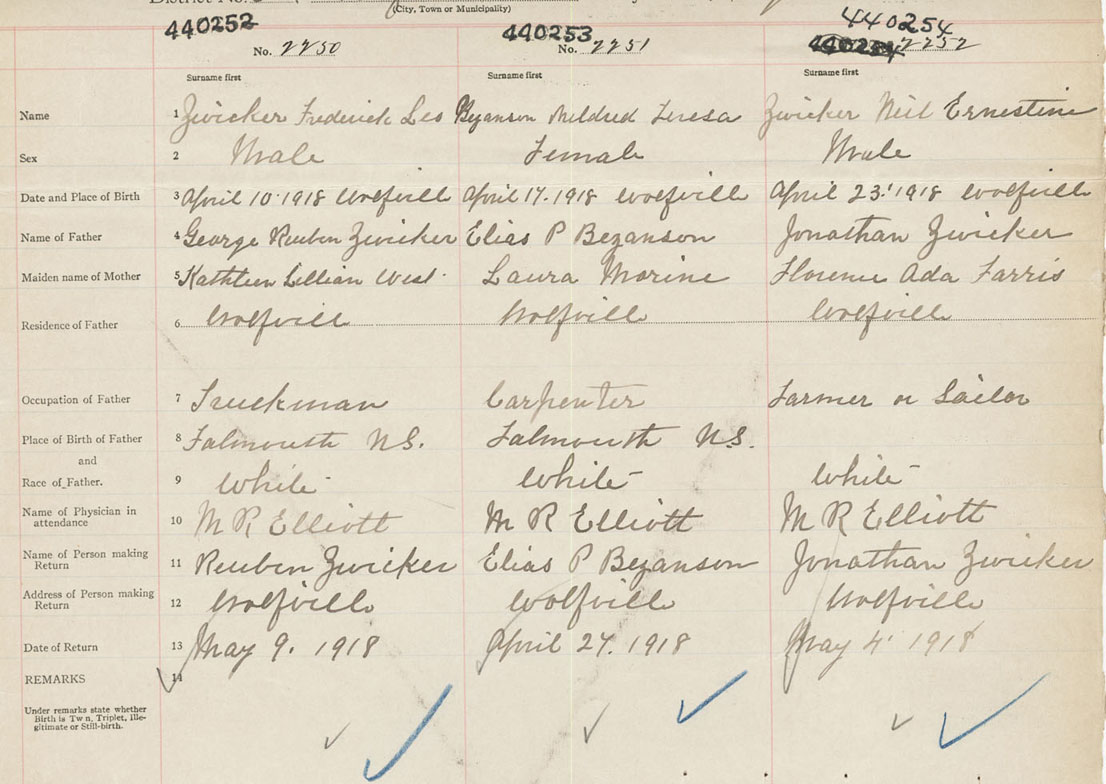 (City, Town or Municipality)
440252 440253 440254
No. 2250 No. 2251 2252
Surname first Surname first Surname first
Name 1 Zwicker Frederick Leo Bezanson Mildred Teresa Zwicker Neil Ernestine
Sex 2 Male Female Male
Date and Place of Birth 3 April 10 1918 Wolfvill April 17. 1918 Wolfville April 23 1918 Wolfville
Name of Father 4 George Reuben Zwicker Elias P Bezanson Jonathan Zwicker
Maiden name of Mother 5 Kathleen Lillian West Laura Morine Florence Ada Farris
Residence of Father 6 Wolfvill Wolfvill Wolfvill
Occupation of Father 7 Truckman Carpenter Farmer or Sailor
Place of Birth of Father 8 Falmouth N.S. Falmouth N.S.
and
Race of Father. 9 White White White
Name of Physician in
attendance 10 M R Elliott M R Elliott M R Elliott
Name of Person making
Return 11 Reuben Zwicker Elias P Bezanson Jonathan Zwicker
Address of Person making
Return 12 Wolfvill Wolfvill Wolfvill
Date of Return 13 May 9. 1918 April 27. 1918 May 4 1918
REMARKS 14
Under remarks state whether
Birth is Twn, Triplet, Ille-
gitimate or Still-birth.